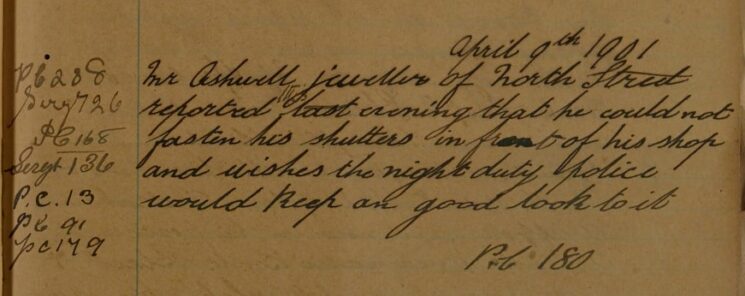 April 9th 1901
Mr Ashwell, jeweller of North Street
reported this last evening that he could not
fasten his shutters in front of his shop
and wishes the night duty police
would keep an good look to it
P.C 180
PC 238
Sergt 726
PC 168
Sergt 136
P.C. 13
PC 91
PC 179